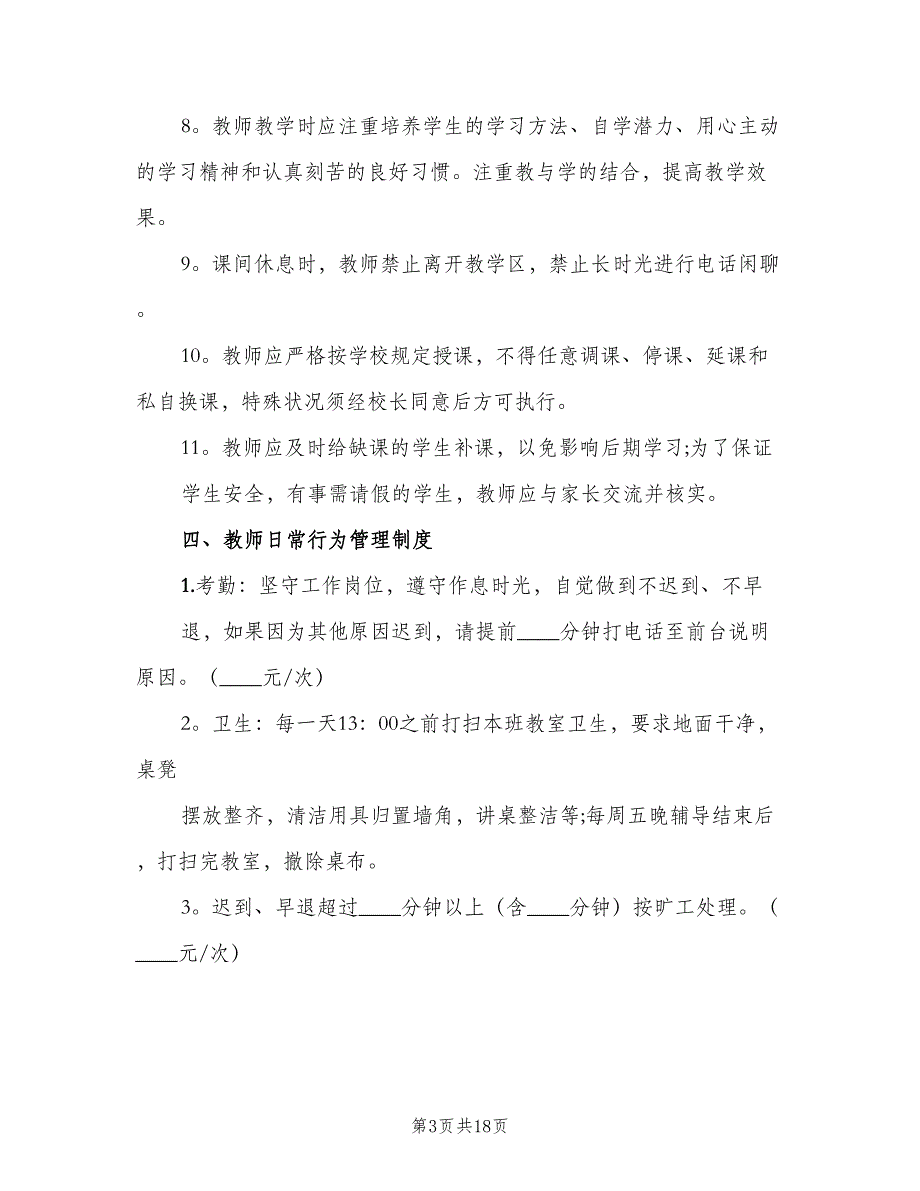 8。教师教学时应注重培养学生的学习方法、自学潜力、用心主动
的学习精神和认真刻苦的良好习惯。注重教与学的结合，提高教学效
果。
9。课间休息时，教师禁止离开教学区，禁止长时光进行电话闲聊
。
10。教师应严格按学校规定授课，不得任意调课、停课、延课和
私自换课，特殊状况须经校长同意后方可执行。
11。教师应及时给缺课的学生补课，以免影响后期学习;为了保证
学生安全，有事需请假的学生，教师应与家长交流并核实。
四、教师日常行为管理制度
1.考勤：坚守工作岗位，遵守作息时光，自觉做到不迟到、不早
退，如果因为其他原因迟到，请提前____分钟打电话至前台说明
原因。（____元/次）
2。卫生：每一天13：00之前打扫本班教室卫生，要求地面干净，
桌凳
摆放整齐，清洁用具归置墙角，讲桌整洁等;每周五晚辅导结束后
，打扫完教室，撤除桌布。
3。迟到、早退超过____分钟以上（含____分钟）按旷工处理。（
____元/次）
第3页共18页